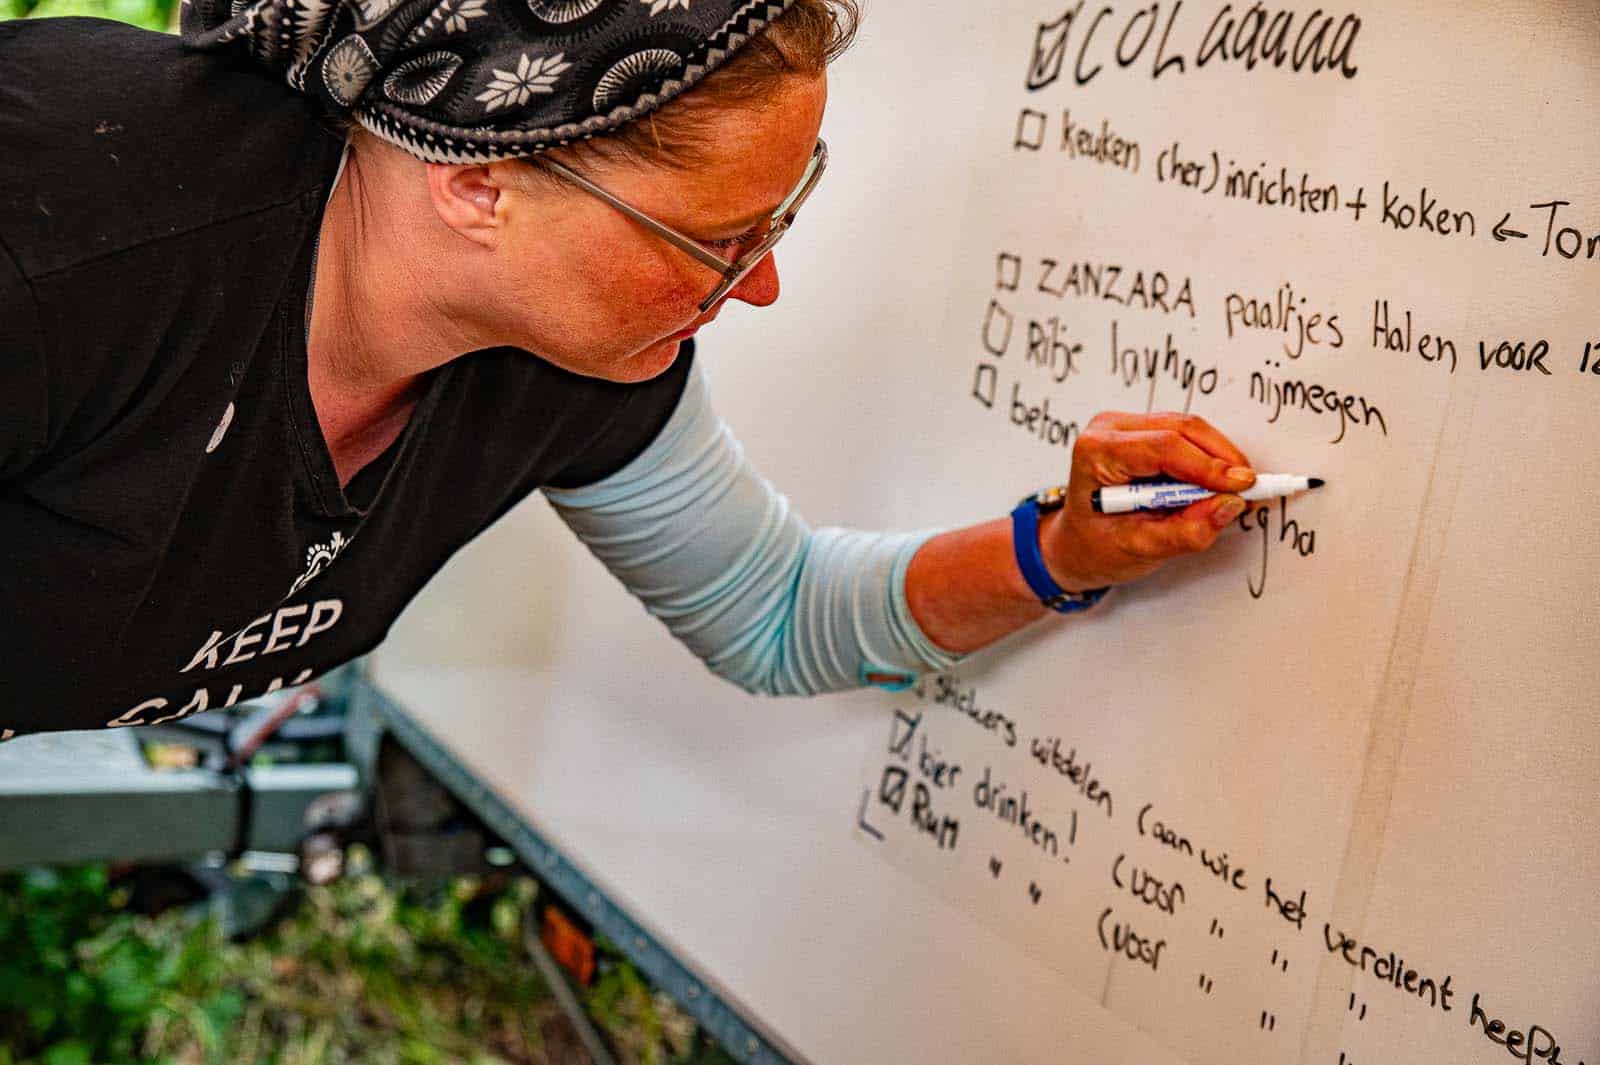 ☑ COLaaaaa
☐ keuken (her)inrichten + koken ← Ton
☐ ZANZARA paaltjes Halen VOOR 12
☐ Ritje layhgo nijmegen
☐ beton
egha
stickers uitdelen (aan wie het verdient heeft
☑ bier drinken! (voor " " "
☑ Rum " " (voor " " "
KEEP
CALM